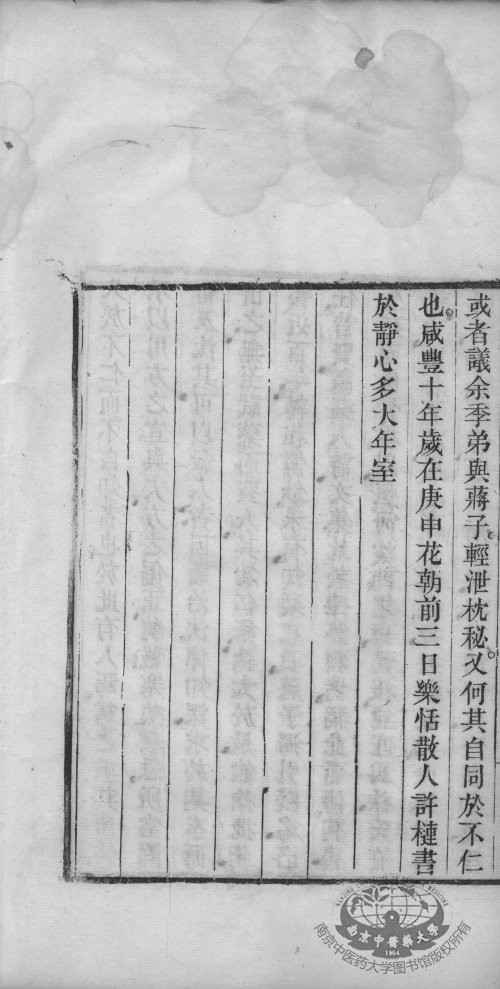 或者議余季弟與蔣子。輕泄枕秘。又何其自同於不仁
也。咸豐十年歲在庚申花朝前三日樂恬散人許槤書
於靜心多大年室
南京中醫藥大學
1954
南京中医药大学图书馆版权所有